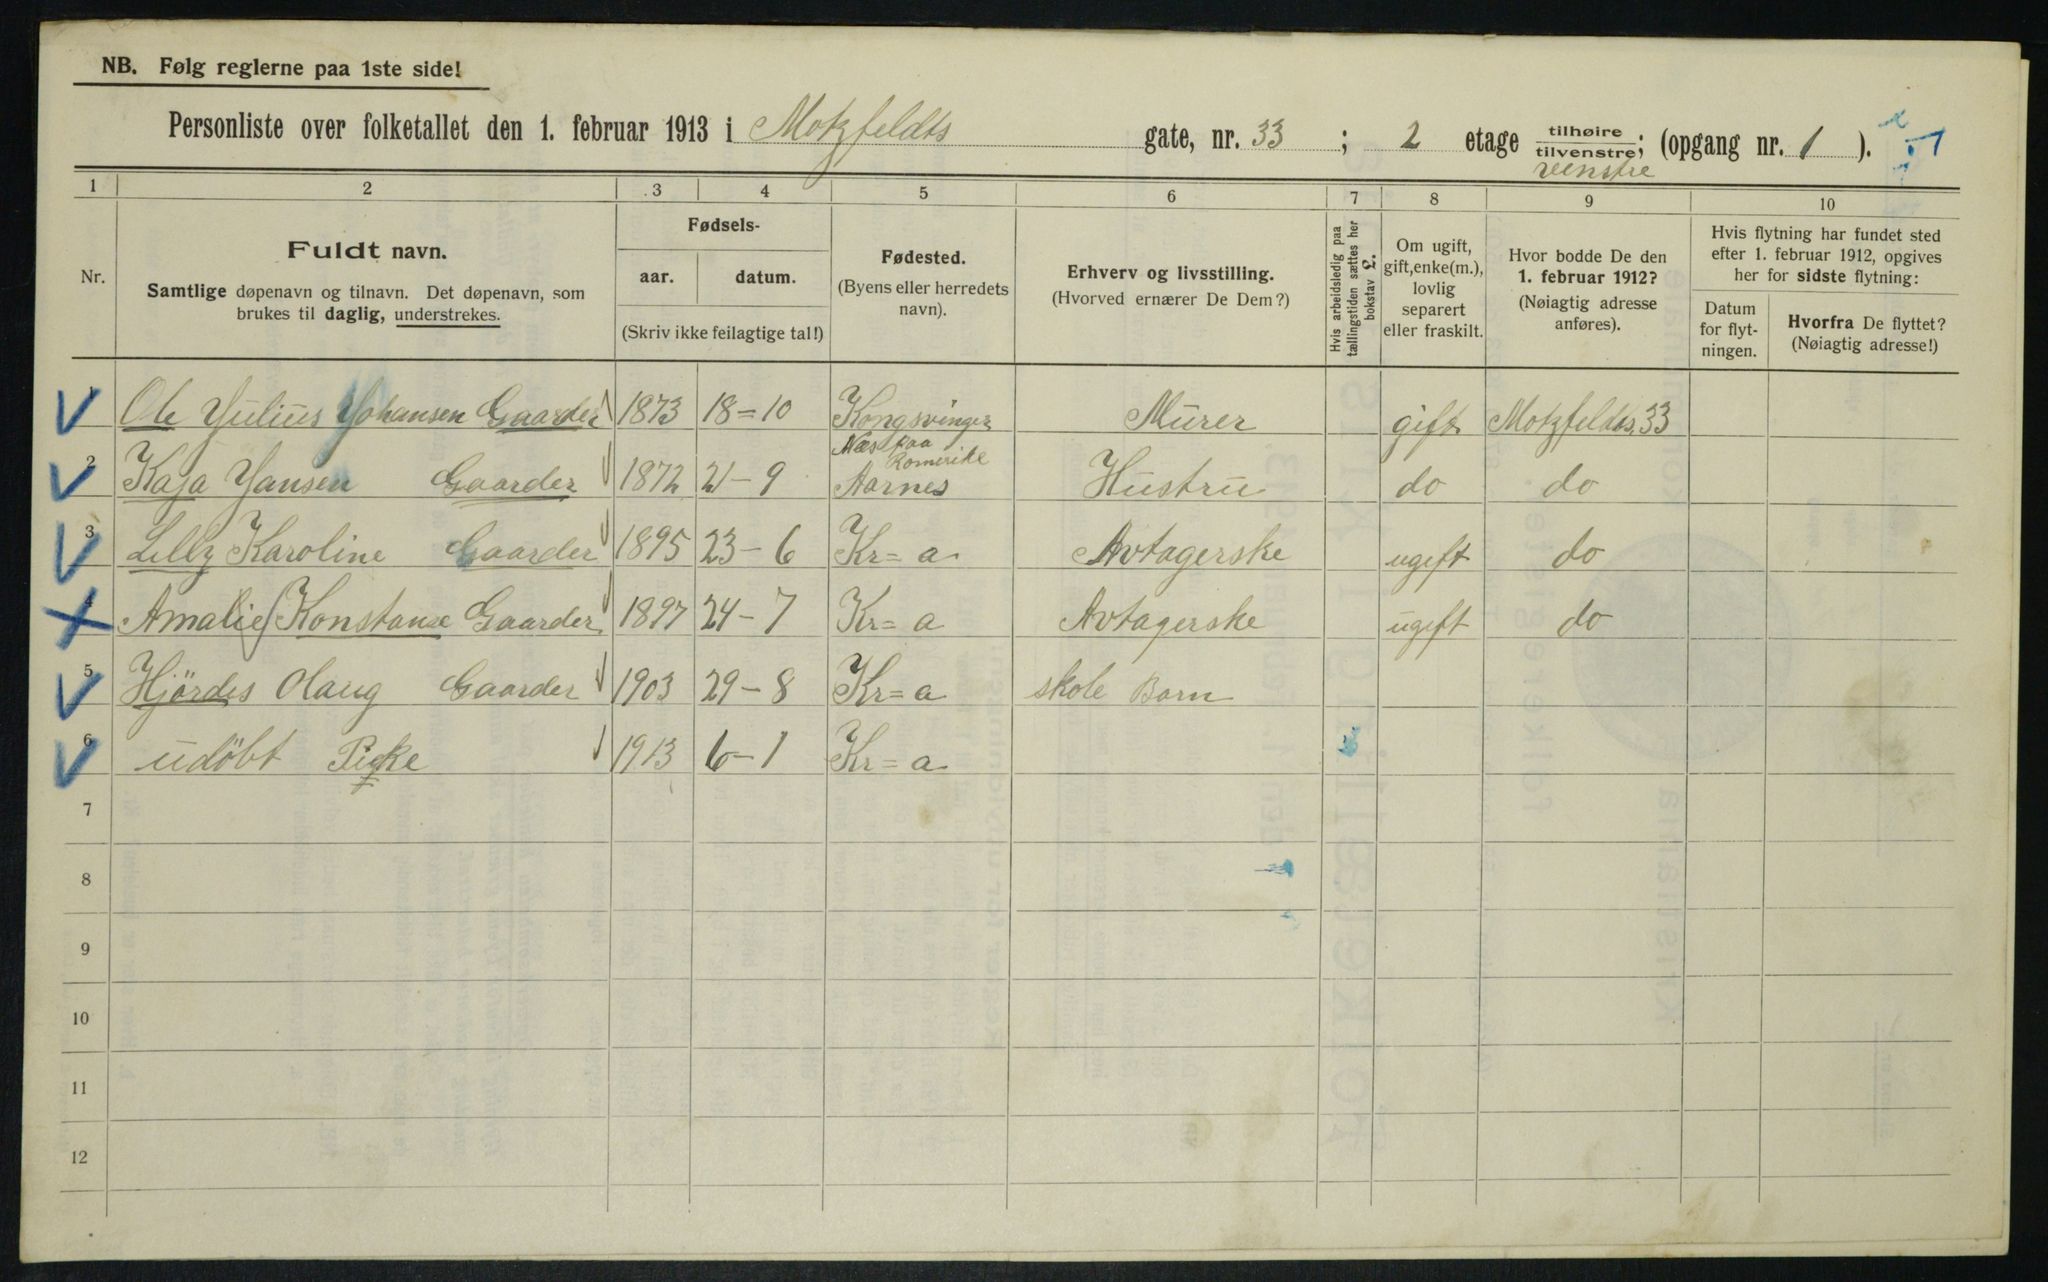 NB. Følg reglerne paa 1ste side!
Personliste over folketallet den 1. februar 1913 i Motzfeldts gate, nr. 33 ; 2 etage tilhøire tilvenstre; (opgang nr. 1 ).
venstre
1 2 3 4 5 6 7 8 9 10
Nr.
Fuldt navn.
Samtlige døpenavn og tilnavn. Det døpenavn, som
brukes til daglig, understrekes.
Fødsels-
aar. datum.
(Skriv ikke feilagtige tal!)
Fødested.
(Byens eller herredets
navn).
Erhverv og livsstilling.
(Hvorved ernærer De Dem?)
Hvis arbeidsledig paa
tællingstiden sættes her
bokstav L.
Om ugift,
gift, enke(m.),
lovlig
separert
eller fraskilt.
Hvor bodde De den
1. februar 1912?
(Nøiagtig adresse
anføres).
Hvis flytning har fundet sted
efter 1. februar 1912, opgives
her for sidste flytning:
Datum
for flyt-
ningen.
Hvorfra De flyttet?
(Nøiagtig adresse!)
1 Ole Julius Johansen Gaarder 1873 18=10 Kongsvinger Murer gift Motzfeldts. 33
Næs paa
Romerike
2 Kaja Jansen Gaarder 1872 21-9 Aarnes Hustru do do
3 Lelly Karoline Gaarder 1895 23-6 Kr=a Avtagerske ugift do
4 Amalie Konstanse Gaarder 1897 24-7 Kr=a Avtagerske ugift do
5 Hjördis Olaug Gaarder 1903 29-8 Kr=a skole Barn
6 udöbt Picke 1913 6-1 Kr=a
7
8
9
10
11
12